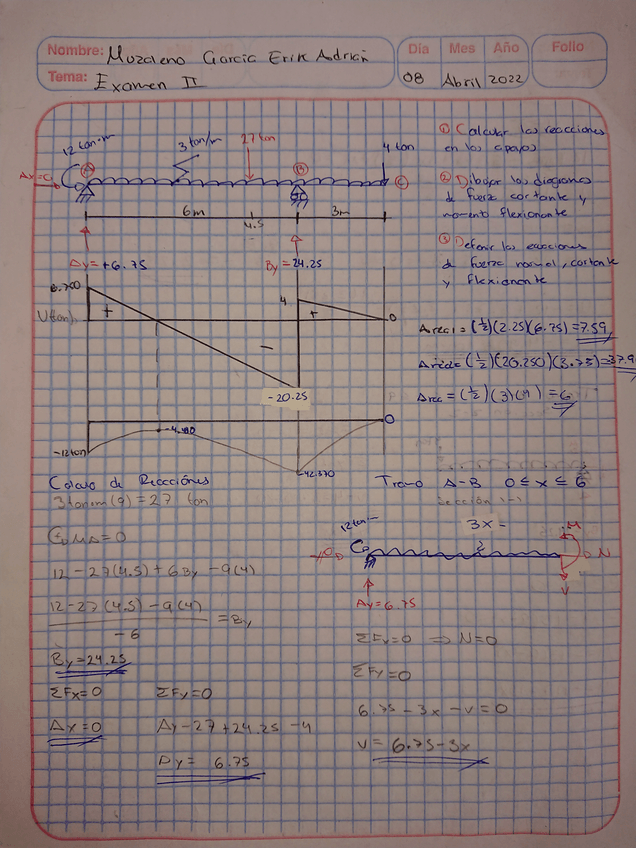 Nombre: Muzaleno Garcia Erik Adrián
Día Mes Año Folio
Tema: Examen II
08 Abril 2022
12 ton·m
3 ton/m
27 ton
4 ton
A
B
C
6m
4.5
3m
Ay = +6.75
By = 24.25
① Calcular las reacciones
en los apoyos
② Dibujar los diagramas
de fuerza cortante y
momento flexionante
③ Definir las ecuaciones
de fuerza normal, cortante
y flexionante
6.750
V(ton)
+
4
+
0
−
-20.25
Area1 = (1/2)(2.25)(6.75) = 7.59
Area2 = (1/2)(20.250)(3.75) = 37.9
Area = (1/2)(3)(4) = 6
0
-12 ton
-42.370
Calculo de Reacciónes
3 ton·m (9) = 27 ton
ΣMA = 0
12 - 27(4.5) + 6By - 9(4)
12 - 27(4.5) - 9(4)
-6
= By
By = 24.25
ΣFx = 0 ΣFy = 0
Ax = 0 Ay - 27 + 24.25 - 4
Ay = 6.75
Tramo A-B 0 ≤ x ≤ 6
Sección 1-1
3x
12 ton·m
M
N
V
Ay = 6.75
ΣFx = 0 ⇒ N = 0
ΣFy = 0
6.75 - 3x - v = 0
v = 6.75 - 3x